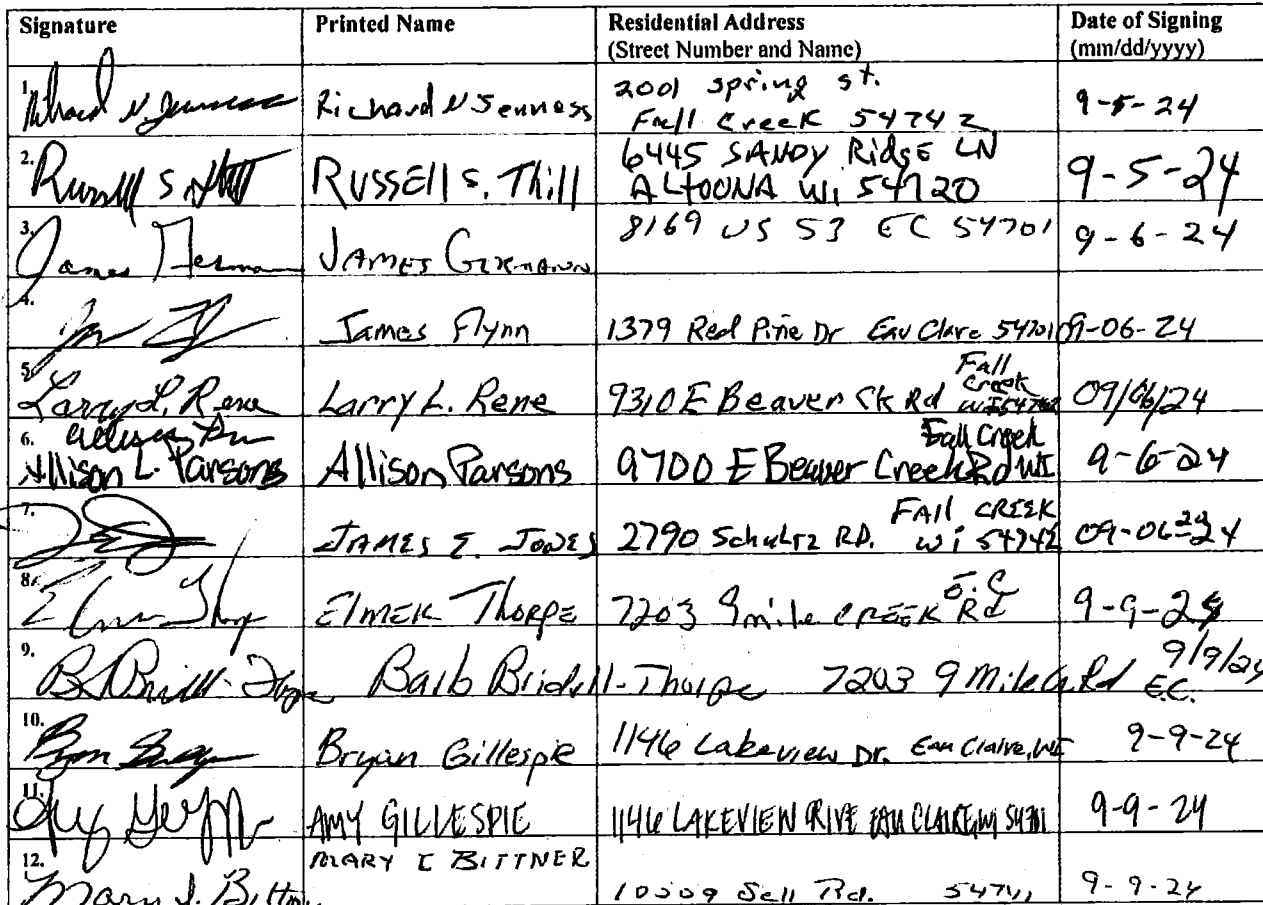 Signature Printed Name Residential Address Date of Signing
(Street Number and Name) (mm/dd/yyyy)
1. Richard N Jenness 2001 spring st. 9-5-24
Fall Creek 54742
2. Russell S. Thill 6445 SANDY Ridge LN 9-5-24
ALTOONA Wi 54720
3. James German JAMES GERMANN 8169 US 53 EC 54701 9-6-24
4. James Flynn 1379 Red Pine Dr Eau Clare 54701 9-06-24
5. Larry L. Rene Larry L. Rene 9310 E Beaver Ck Rd Fall Creek WI 54742 09/06/24
6. Allison L. Parsons Allison Parsons 9700 E Beaver Creek Rd Fall Creek WI 9-6-24
7. JAMES E. JONES 2790 Schultz RD. FAll CREEK Wi 54742 09-06-24
8. ElmER ThorpE 7203 9 mile CREEK Rd E.C 9-9-24
9. Barb Bridell-Thorpe 7203 9 Mile Cr Rd E.C. 9/9/24
10. Bryan Gillespie 1146 Lakeview Dr. Eau Claire, WI 9-9-24
11. AMY GILLESPIE 1146 LAKEVIEW DRIVE EAU CLAIRE, WI 54701 9-9-24
12. MARY I BITTNER
Mary I. Bittner Sell Rd. 9-9-24